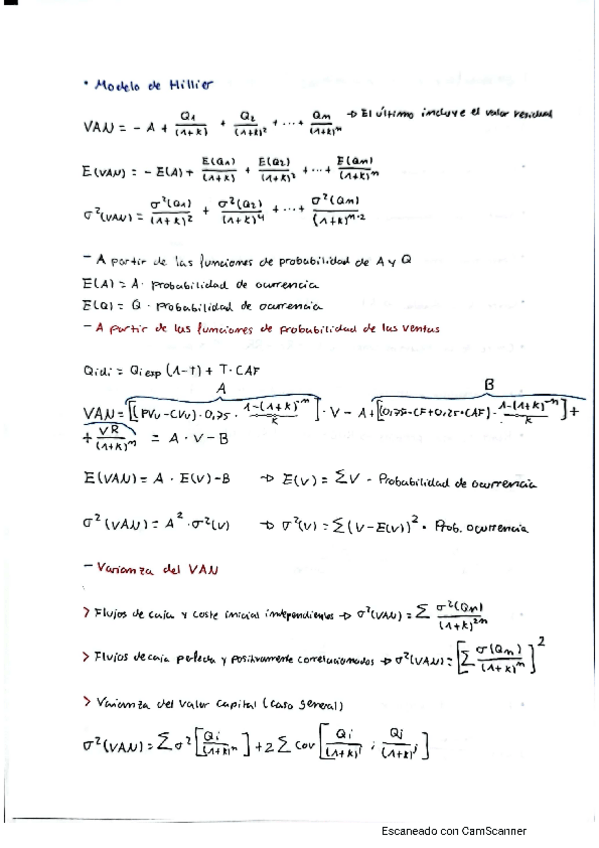 • Modelo de Hillier
VAN = - A + Q1/(1+k) + Q2/(1+k)² + ... + Qn/(1+k)ⁿ → El último incluye el valor residual
E(VAN) = - E(A) + E(Q1)/(1+k) + E(Q2)/(1+k)² + ... + E(Qn)/(1+k)ⁿ
σ²(VAN) = σ²(Q1)/(1+k)² + σ²(Q2)/(1+k)⁴ + ... + σ²(Qn)/(1+k)ⁿ·²
- A partir de las funciones de probabilidad de A y Q
E(A) = A · probabilidad de ocurrencia
E(Q) = Q · probabilidad de ocurrencia
- A partir de las funciones de probabilidad de las ventas
Qidi = Qiesp (1-T) + T · CAF
A B
VAN = [(PVu-CVu) · 0,75 · 1-(1+k)⁻ⁿ/k] · V - A + [(0,75·-CF+0,25·CAF) · 1-(1+k)⁻ⁿ/k] +
+ VR/(1+k)ⁿ = A · V - B
E(VAN) = A · E(V) - B → E(V) = ΣV · Probabilidad de ocurrencia
σ²(VAN) = A² · σ²(V) → σ²(V) = Σ(V-E(V))² · Prob. ocurrencia
- Varianza del VAN
> Flujos de caja y coste inicial independientes → σ²(VAN) = Σ σ²(Qn)/(1+k)²ⁿ
> Flujos de caja perfecta y positivamente correlacionados → σ²(VAN) = [Σ σ(Qn)/(1+k)ⁿ]²
> Varianza del valor capital (caso general)
σ²(VAN) = Σσ² [Qi/(1+k)ⁿ] + 2 Σ cov [Qi/(1+k)ⁱ ; Qj/(1+k)ʲ]
Escaneado con CamScanner